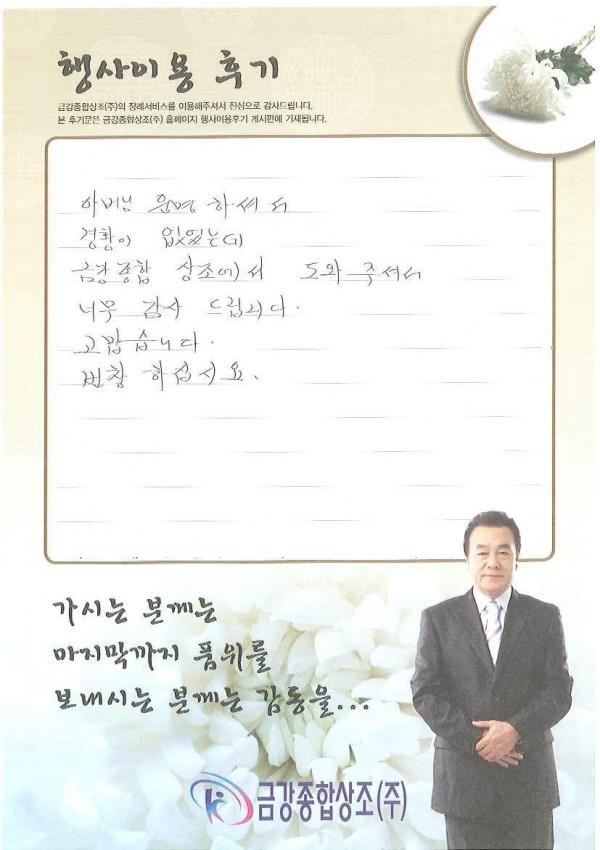 행사이용 후기
금강종합상조(주)의 장례서비스를 이용해주셔서 진심으로 감사드립니다.
본 후기문은 금강종합상조(주) 홈페이지 행사이용후기 게시판에 기재됩니다.
아버님 운명 하셔서
경황이 없었는데
금강종합 상조에서 도와 주셔서
너무 감사 드립니다.
고맙습니다.
번창 하십시요.
가시는 분께는
마지막까지 품위를
보내시는 분께는 감동을...
금강종합상조(주)